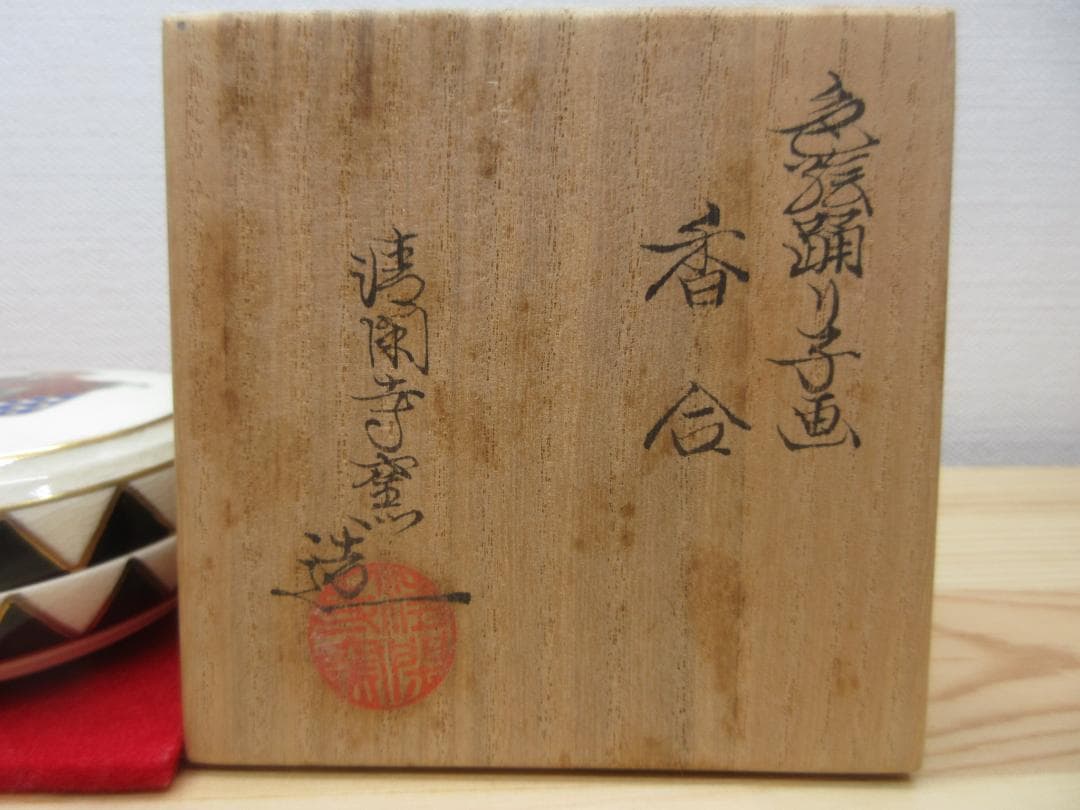 色絵踊り子画
香合
清閑寺窯
造